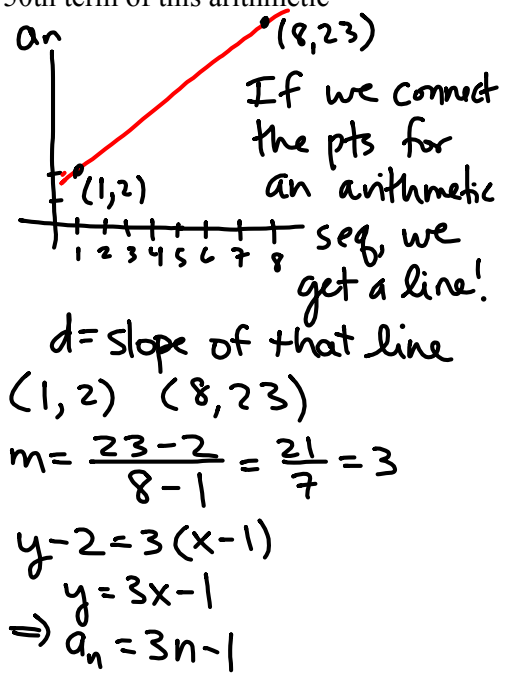 50th term of this arithmetic
an
(8,23)
If we connect
the pts for
an arithmetic
seq, we
get a line!
(1,2)
1 2 3 4 5 6 7 8
d = slope of that line
(1,2) (8,23)
m = 23-2 / 8-1 = 21/7 = 3
y-2=3(x-1)
y=3x-1
⇒ an = 3n-1